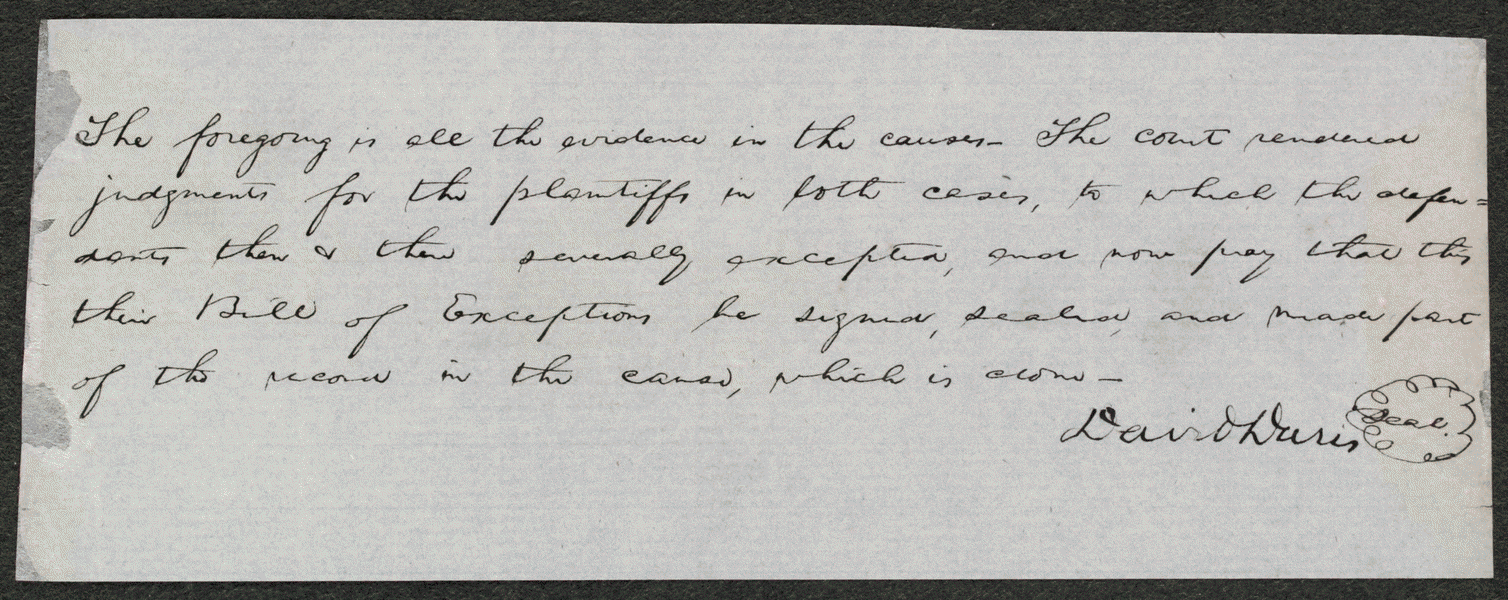 The foregoing is all the evidence in the causes— The court rendered
judgments for the plaintiffs in both cases, to which the defen=
dants then & there severally excepted, and now pray that this
their Bill of Exceptions be signed, sealed, and made part
of the record in the cause, which is done—
David Davis Seal.